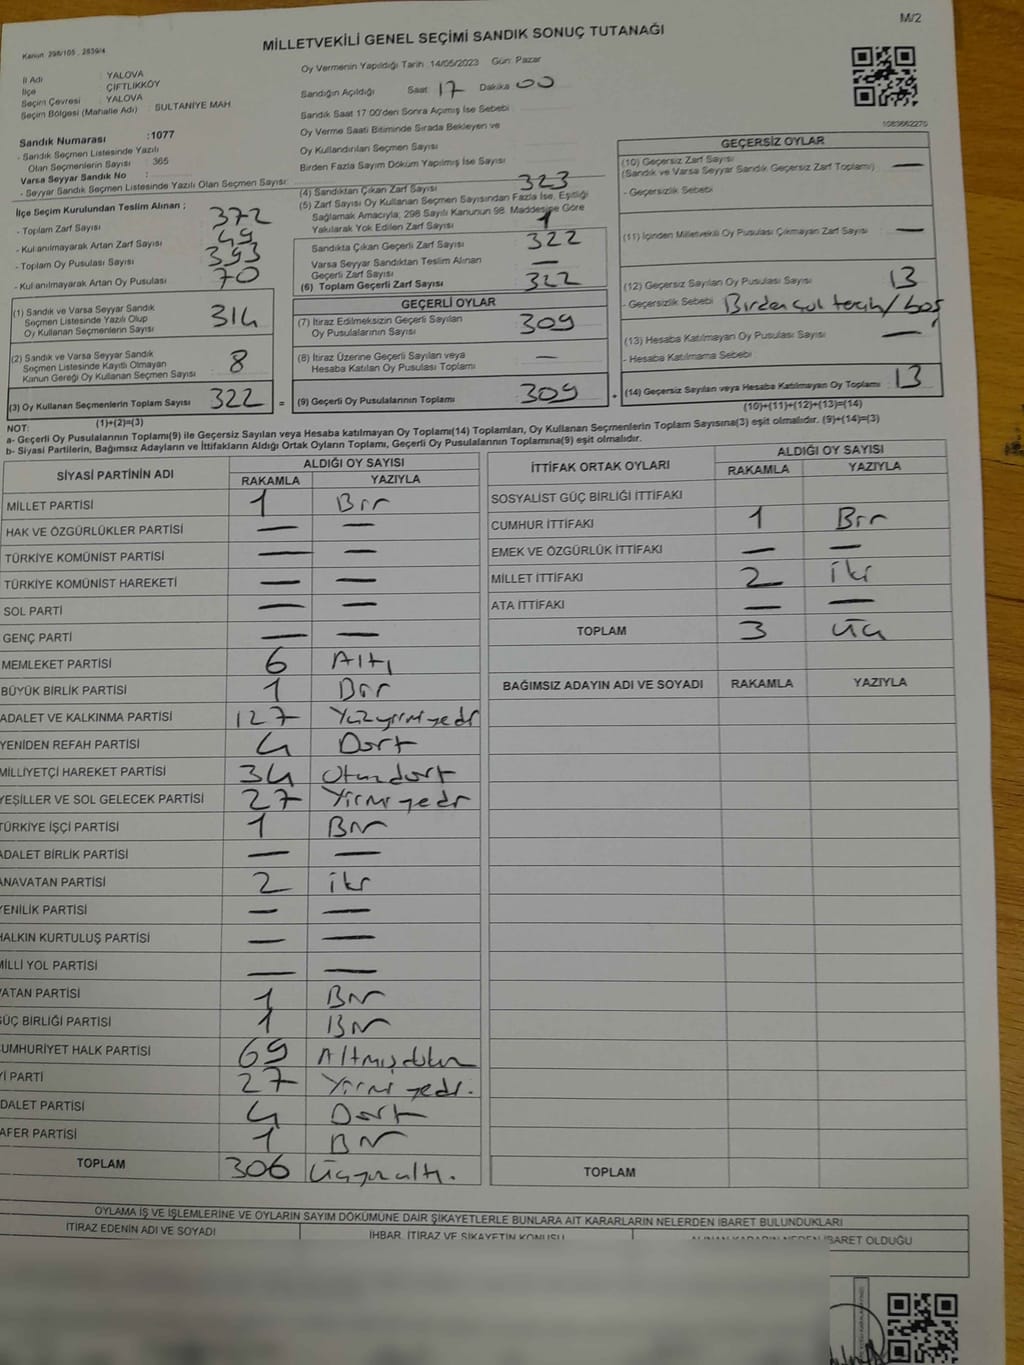 M/2
Kanun: 298/105 , 2839/4
MİLLETVEKİLİ GENEL SEÇİMİ SANDIK SONUÇ TUTANAĞI
İl Adı : YALOVA
İlçe : ÇİFTLİKKÖY
Seçim Çevresi : YALOVA
Seçim Bölgesi (Mahalle Adı) : SULTANİYE MAH
Oy Vermenin Yapıldığı Tarih :14/05/2023 Gün: Pazar
Sandığın Açıldığı Saat: 17 Dakika: 00
Sandık Saat 17:00'den Sonra Açılmış İse Sebebi :
Oy Verme Saati Bitiminde Sırada Bekleyen ve
Oy Kullandırılan Seçmen Sayısı
Birden Fazla Sayım Döküm Yapılmış İse Sayısı
1083662270
Sandık Numarası :1077
- Sandık Seçmen Listesinde Yazılı
Olan Seçmenlerin Sayısı : 365
Varsa Seyyar Sandık No :
- Seyyar Sandık Seçmen Listesinde Yazılı Olan Seçmen Sayısı:
İlçe Seçim Kurulundan Teslim Alınan ;
- Toplam Zarf Sayısı : 372
- Kullanılmayarak Artan Zarf Sayısı : 49
- Toplam Oy Pusulası Sayısı : 393
- Kullanılmayarak Artan Oy Pusulası : 70
(1) Sandık ve Varsa Seyyar Sandık
Seçmen Listesinde Yazılı Olup
Oy Kullanan Seçmenlerin Sayısı : 314
(2) Sandık ve Varsa Seyyar Sandık
Seçmen Listesinde Kayıtlı Olmayan
Kanun Gereği Oy Kullanan Seçmen Sayısı : 8
(3) Oy Kullanan Seçmenlerin Toplam Sayısı : 322 =
(1)+(2)=(3)
(4) Sandıktan Çıkan Zarf Sayısı : 323
(5) Zarf Sayısı Oy Kullanan Seçmen Sayısından Fazla İse, Eşitliği
Sağlamak Amacıyla; 298 Sayılı Kanunun 98. Maddesine Göre
Yakılarak Yok Edilen Zarf Sayısı : 1
Sandıkta Çıkan Geçerli Zarf Sayısı : 322
Varsa Seyyar Sandıktan Teslim Alınan
Geçerli Zarf Sayısı : —
(6) Toplam Geçerli Zarf Sayısı : 322
GEÇERLİ OYLAR
(7) İtiraz Edilmeksizin Geçerli Sayılan
Oy Pusulalarının Sayısı : 309
(8) İtiraz Üzerine Geçerli Sayılan veya
Hesaba Katılan Oy Pusulası Toplamı : —
(9) Geçerli Oy Pusulalarının Toplamı : 309 +
GEÇERSİZ OYLAR
(10) Geçersiz Zarf Sayısı
(Sandık ve Varsa Seyyar Sandık Geçersiz Zarf Toplamı) : —
- Geçersizlik Sebebi :
(11) İçinden Milletvekili Oy Pusulası Çıkmayan Zarf Sayısı : —
(12) Geçersiz Sayılan Oy Pusulası Sayısı : 13
- Geçersizlik Sebebi : Birden çok tercih/boş
(13) Hesaba Katılmayan Oy Pusulası Sayısı : —
- Hesaba Katılmama Sebebi :
(14) Geçersiz Sayılan veya Hesaba Katılmayan Oy Toplamı : 13
(10)+(11)+(12)+(13)=(14)
NOT:
a- Geçerli Oy Pusulalarının Toplamı(9) ile Geçersiz Sayılan veya Hesaba katılmayan Oy Toplamı(14) Toplamları, Oy Kullanan Seçmenlerin Toplam Sayısına(3) eşit olmalıdır. (9)+(14)=(3)
b- Siyasi Partilerin, Bağımsız Adayların ve İttifakların Aldığı Ortak Oyların Toplamı, Geçerli Oy Pusulalarının Toplamına(9) eşit olmalıdır.
SİYASİ PARTİNİN ADI ALDIĞI OY SAYISI
RAKAMLA YAZIYLA
MİLLET PARTİSİ 1 Bir
HAK VE ÖZGÜRLÜKLER PARTİSİ — —
TÜRKİYE KOMÜNİST PARTİSİ — —
TÜRKİYE KOMÜNİST HAREKETİ — —
SOL PARTİ — —
GENÇ PARTİ — —
MEMLEKET PARTİSİ 6 Altı
BÜYÜK BİRLİK PARTİSİ 1 Bir
ADALET VE KALKINMA PARTİSİ 127 Yüzyirmiyedi
YENİDEN REFAH PARTİSİ 4 Dört
MİLLİYETÇİ HAREKET PARTİSİ 34 Otuzdört
YEŞİLLER VE SOL GELECEK PARTİSİ 27 Yirmiyedi
TÜRKİYE İŞÇİ PARTİSİ 1 Bir
ADALET BİRLİK PARTİSİ — —
ANAVATAN PARTİSİ 2 iki
YENİLİK PARTİSİ — —
HALKIN KURTULUŞ PARTİSİ — —
MİLLİ YOL PARTİSİ — —
VATAN PARTİSİ 1 Bir
GÜÇ BİRLİĞİ PARTİSİ 1 Bir
CUMHURİYET HALK PARTİSİ 69 Altmışdokuz
İYİ PARTİ 27 Yirmiyedi.
ADALET PARTİSİ 4 Dört
ZAFER PARTİSİ 1 Bir
TOPLAM 306 Üçyüzaltı.
İTTİFAK ORTAK OYLARI ALDIĞI OY SAYISI
RAKAMLA YAZIYLA
SOSYALİST GÜÇ BİRLİĞİ İTTİFAKI
CUMHUR İTTİFAKI 1 Bir
EMEK VE ÖZGÜRLÜK İTTİFAKI — —
MİLLET İTTİFAKI 2 iki
ATA İTTİFAKI — —
TOPLAM 3 Üç
BAĞIMSIZ ADAYIN ADI VE SOYADI RAKAMLA YAZIYLA
TOPLAM
OYLAMA İŞ VE İŞLEMLERİNE VE OYLARIN SAYIM DÖKÜMÜNE DAİR ŞİKAYETLERLE BUNLARA AİT KARARLARIN NELERDEN İBARET BULUNDUKLARI
İTİRAZ EDENİN ADI VE SOYADI İHBAR, İTİRAZ VE ŞİKAYETİN KONUSU ALINAN KARARIN NEDEN İBARET OLDUĞU